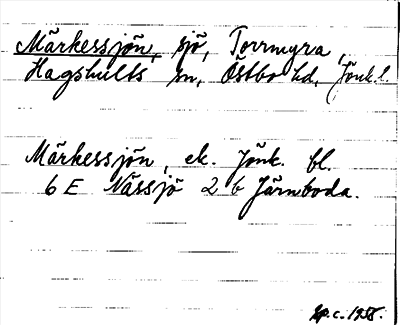 Märkessjön, sjö, Torrmyra,
Hagshults sn, Östbo hd, Jönk.l.
Märkessjön, ek. Jönk. bl.
6 E Nässjö 2 b Järnboda.
Sp.c. 1958.